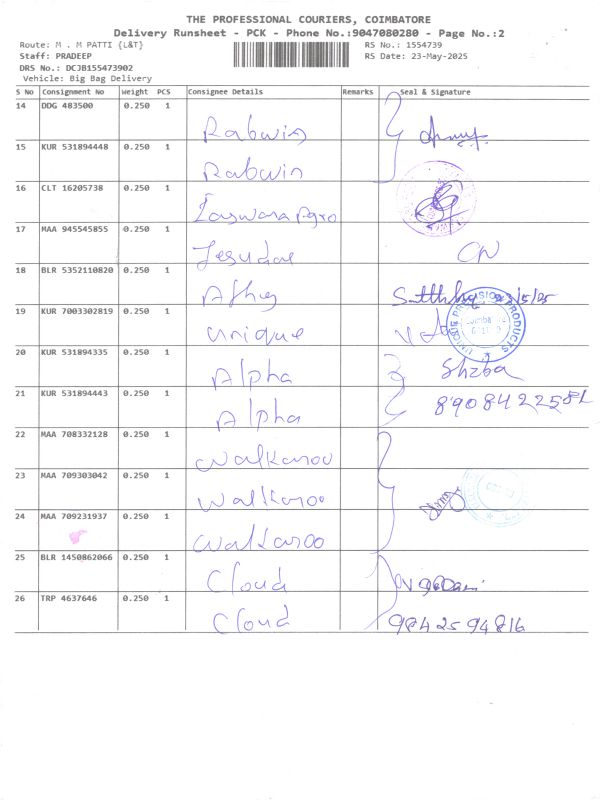 THE PROFESSIONAL COURIERS, COIMBATORE
Delivery Runsheet - PCK - Phone No.:9047080280 - Page No.:2
Route: M . M PATTI {L&T} RS No.: 1554739
Staff: PRADEEP RS Date: 23-May-2025
DRS No.: DCJB155473902
Vehicle: Big Bag Delivery
S No Consignment No Weight PCS Consignee Details Remarks Seal & Signature
14 DDG 483500 0.250 1
Rabwin
15 KUR 531894448 0.250 1
Rabwin
16 CLT 16205738 0.250 1
Agro
17 MAA 945545855 0.250 1
Jesudae CN
18 BLR 5352110820 0.250 1
/5/25
19 KUR 7003302819 0.250 1
unique UNIQUE PRECISION PRODUCTS
20 KUR 531894335 0.250 1
Alpha Sheba
21 KUR 531894443 0.250 1
Alpha 8908422581
22 MAA 708332128 0.250 1
Walkaroo
23 MAA 709303042 0.250 1
Walkaroo
24 MAA 709231937 0.250 1
Walkaroo
25 BLR 1450862066 0.250 1
Cloud
26 TRP 4637646 0.250 1
Cloud 9842594816